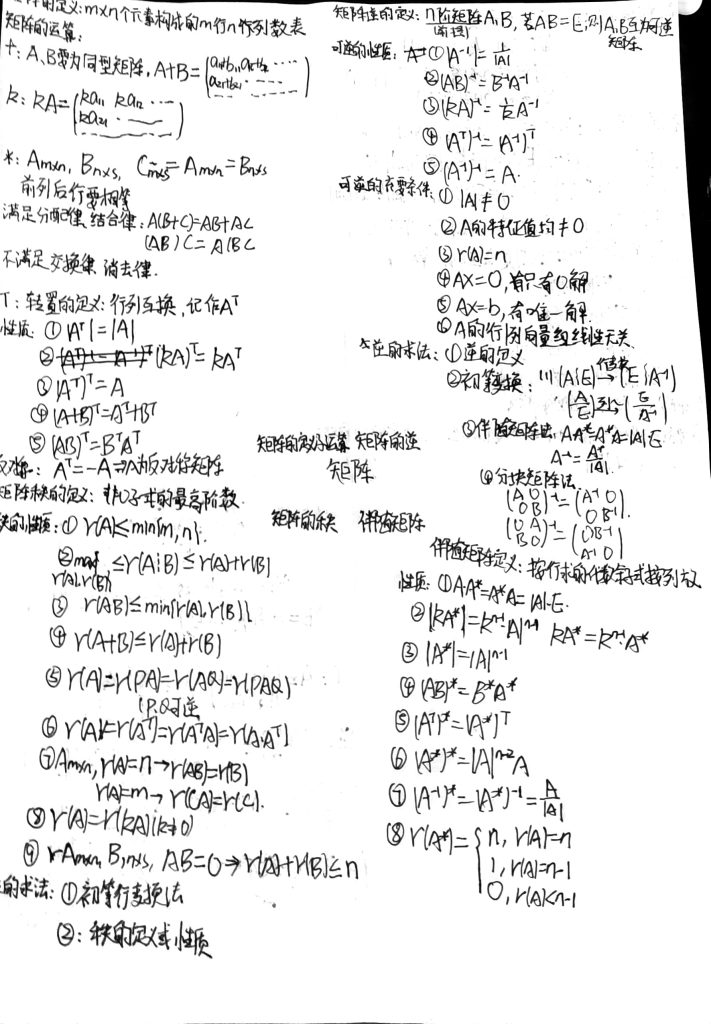 的定义: m×n个元素构成的m行n列数表
矩阵的运算:
+: A、B要为同型矩阵, A+B=(a₁₁+b₁₁ a₁₂+b₁₂ ····
a₂₁+b₂₁ ····)
k: kA=(ka₁₁ ka₁₂ ····
ka₂₁ ····)
*: Am×n, Bn×s, Cm×s=Am×n=Bn×s
前列后行要相等
满足分配律, 结合律: A(B+C)=AB+AC
(AB)C=A(BC
不满足交换律 消去律.
T: 转置的定义: 行列互换, 记作Aᵀ
性质: ① |Aᵀ|=|A|
② (kA)ᵀ=kAᵀ
③ (Aᵀ)ᵀ=A
④ (A+B)ᵀ=Aᵀ+Bᵀ
⑤ (AB)ᵀ=BᵀAᵀ
反对称: Aᵀ=-A⇒A为反对称矩阵
矩阵秩的定义: 非0子式的最高阶数.
秩的性质: ① r(A)≤min{m,n}.
② max ≤r(A¦B)≤r(A)+r(B)
r(A),r(B)
③ r(AB)≤min{r(A),r(B)}
④ r(A+B)≤r(A)+r(B)
⑤ r(A)=r(PA)=r(AQ)=r(PAQ)
(P.Q可逆
⑥ r(A)=r(Aᵀ)=r(AᵀA)=r(A·Aᵀ)
⑦ Am×n, r(A)=n→r(AB)=r(B)
r(A)=m→r(CA)=r(C).
⑧ r(A)=r(kA)(k≠0)
⑨ rAm×n, Bn×s, AB=0⇒r(A)+r(B)≤n
的求法: ①初等行变换法
②: 秩的定义或性质
矩阵的定义与运算 矩阵的逆
矩阵
矩阵的秩 伴随矩阵
矩阵逆的定义: n阶矩阵A,B, 若AB=E,则A,B互为可逆
(前提) 矩阵
可逆的性质: ① |A⁻¹|=1/|A|
② (AB)⁻¹=B⁻¹A⁻¹
③ (kA)⁻¹=1/k A⁻¹
④ (Aᵀ)⁻¹=(A⁻¹)ᵀ
⑤ (A⁻¹)⁻¹=A.
可逆的充要条件: ① |A|≠0
② A的特征值均≠0
③ r(A)=n
④ AX=0, 有只有0解
⑤ AX=b, 有唯一解.
⑥ A的行/列向量组线性无关.
逆的求法: ①逆的定义
②初等变换: (A¦E)→(E¦A⁻¹)
(A/E)→(E/A⁻¹)
③伴随矩阵法: AA*=A*A=|A|E
A⁻¹=A*/|A|.
④分块矩阵法
(A 0
0 B)⁻¹=(A⁻¹ 0
0 B⁻¹).
(0 A
B 0)⁻¹=(0 B⁻¹
A⁻¹ 0)
伴随矩阵定义: 按行求的代数余子式按列放
性质: ① AA*=A*A=|A|·E.
② |kA*|=kⁿ⁻¹·A|ⁿ⁻¹ kA*=kⁿ⁻¹·A*
③ |A*|=|A|ⁿ⁻¹
④ (AB)*=B*A*
⑤ (Aᵀ)*=(A*)ᵀ
⑥ (A*)*=|A|ⁿ⁻²A
⑦ (A⁻¹)*=(A*)⁻¹=A/|A|
⑧ r(A*)={n, r(A)=n
1, r(A)=n-1
0, r(A)<n-1